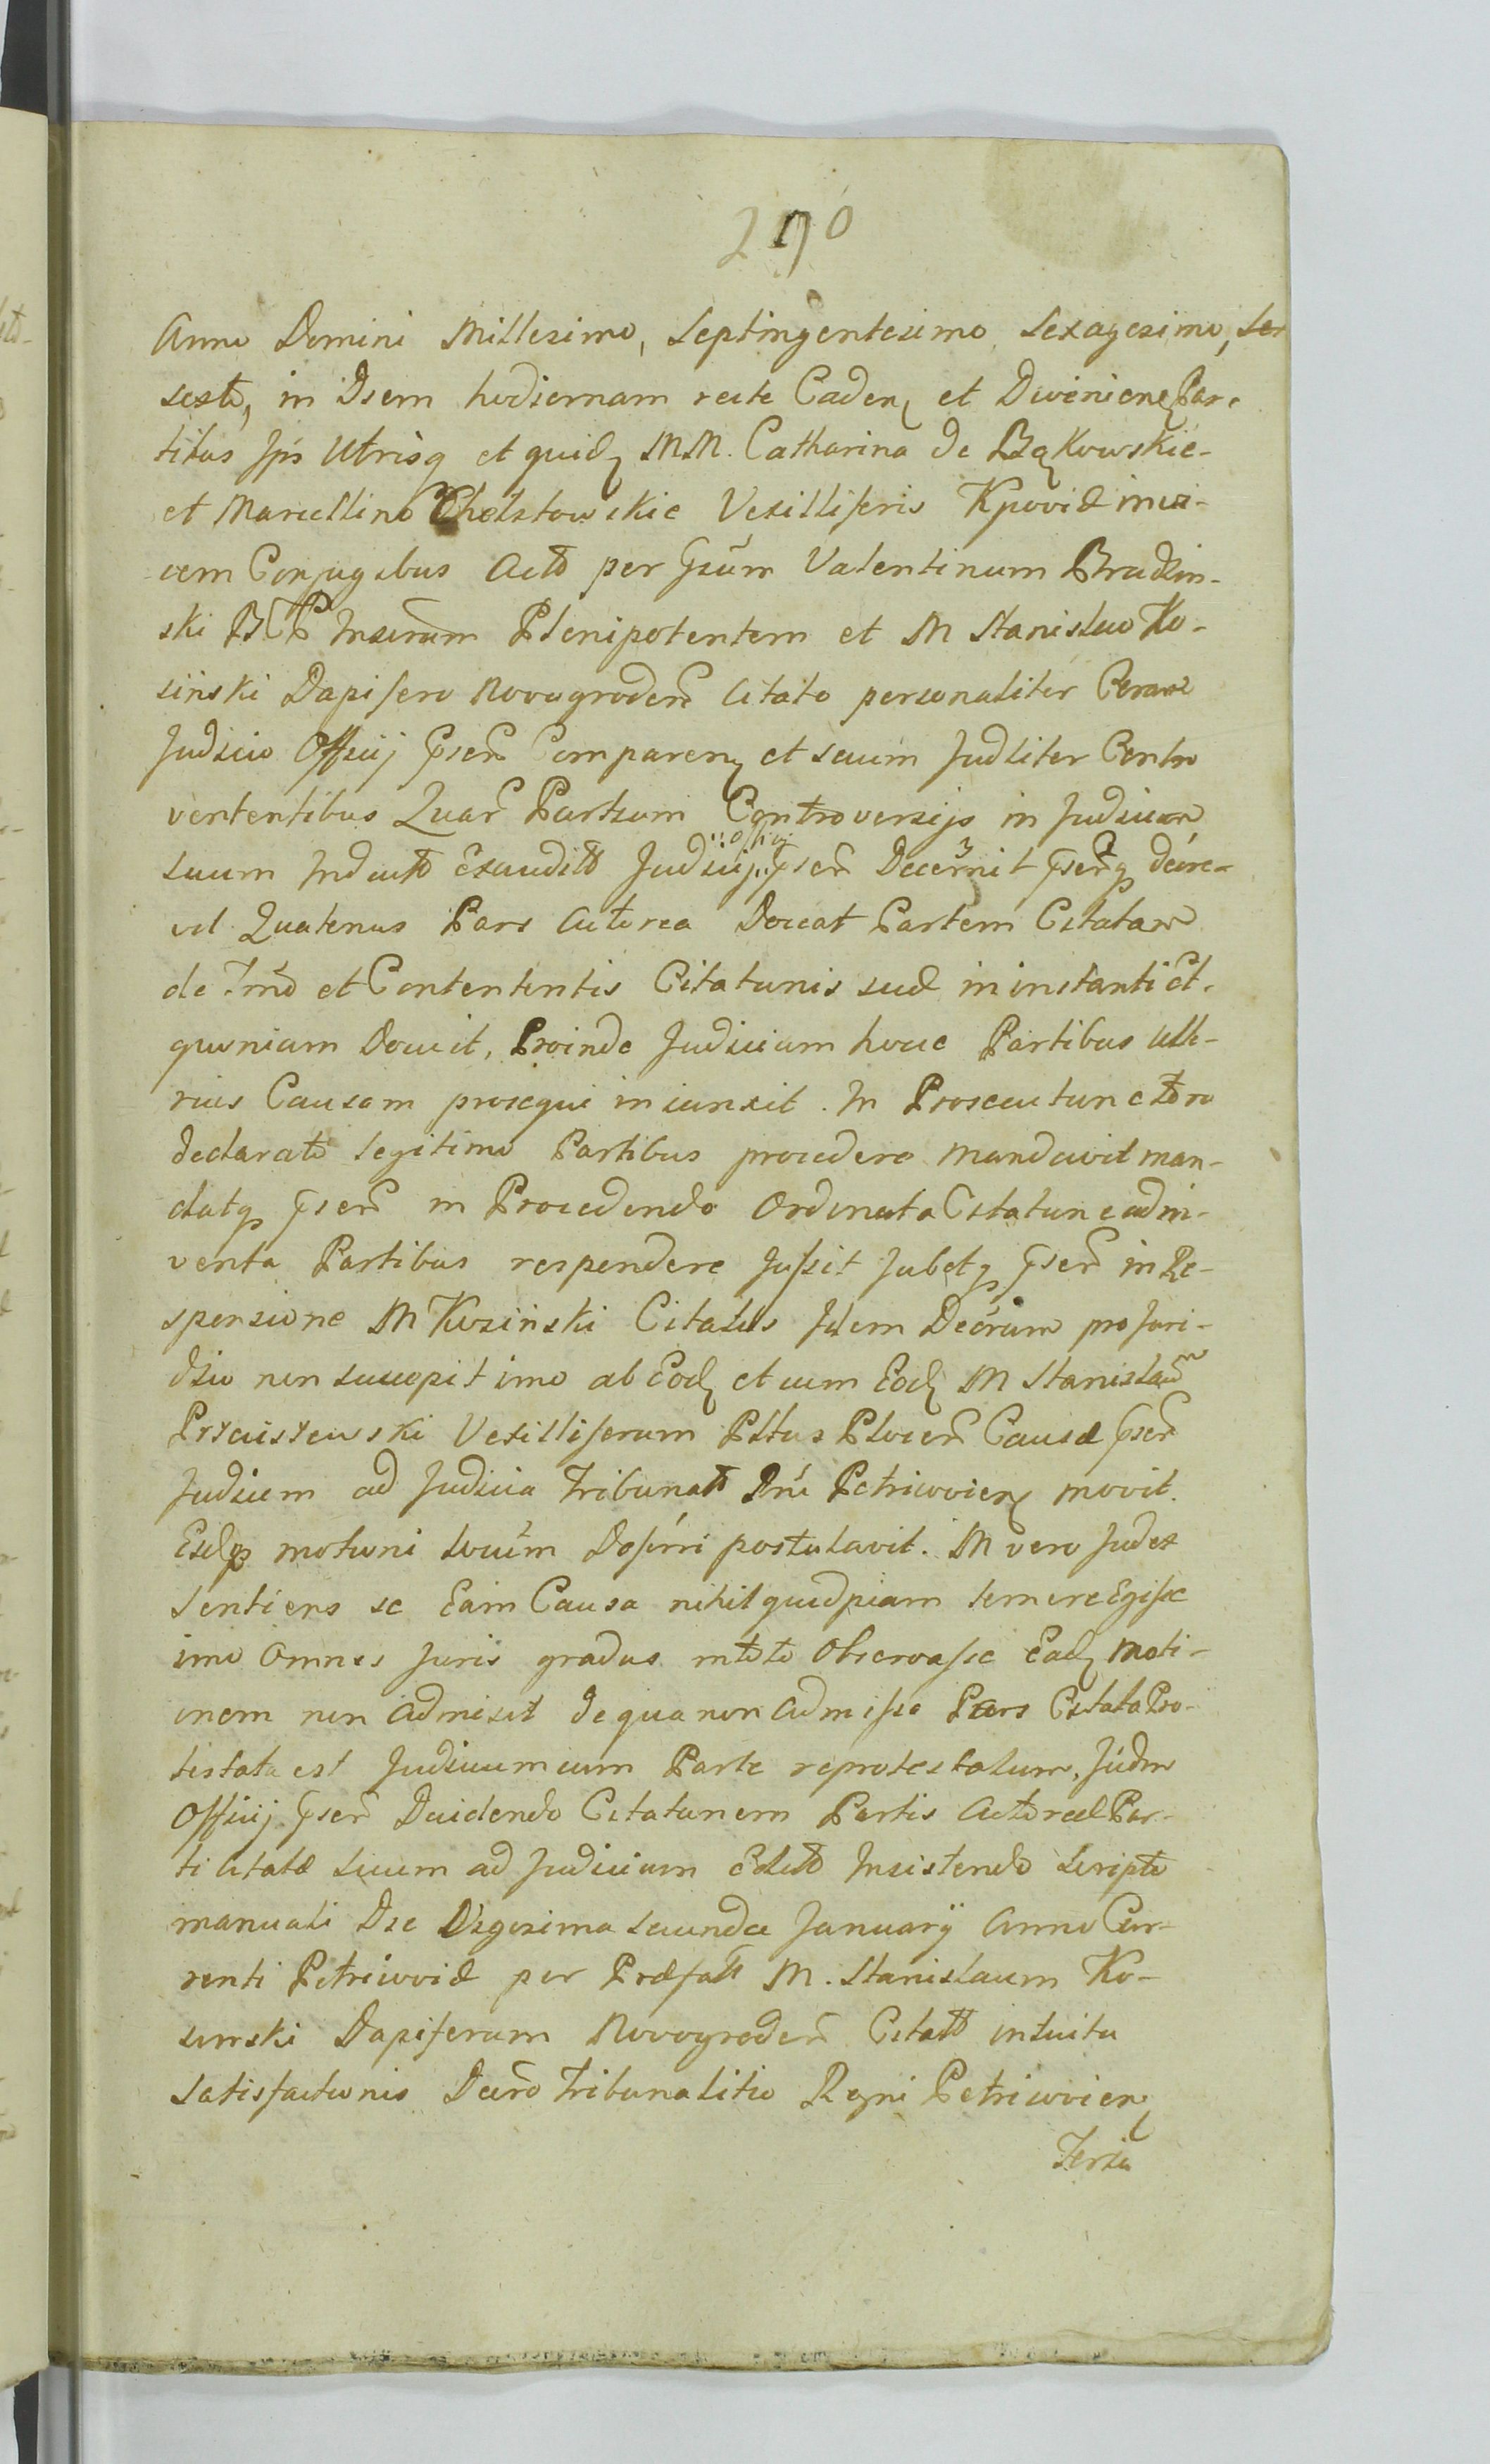 270
Anno Domini Millesimo, Septingentesimo Sexagesimo, Sex
sexto, in Diem hodiernam recte Caden et Devenien Par-
tibus Ips Utrisq et quid MM. Catharina de Bąkowskie-
et Marcellino Chelstowskie Vexilliferis invi-
cem Conjugibus Acto per Gsum Valentinum Brudzin-
ski Plenipotentem et M Stanislao Ko-
sinski Dapifero Novogroden Citato personaliter Coram
Judicio Officij psen Comparen et secum Judliter Contro
vertentibus Quar Partium Controversijs in Judicium
suum Induct Exaudit Judicij officij psen Decernit psenq decre-
vit Quatenus Pars Actorea Doceat Partem Citatam
de Tmo et Contententis Citationis suæ in instanti et
quoniam Docuit, Proinde Judicium hocce Partibus ulte-
rius Causam prosequi iniunxit. In Prosecutione Tro
declarato legitimo Partibus procedere mandavit man-
datq psen in Procedendo Ordinata Citatione adin-
venta Partibus respondere Jussit Jubetq psen in Re-
sponsione M Kosinski Citatus Idem Decrum pro Juri-
dico non suscepit imo ab Eod et cum Eod M Stanislaum
Prsciszewski Vexilliferum Pltus Plocen Causæ psen
Judicem ad Judicia Tribunalt Rni Petricovien movit.
Eidq motioni locum Deferri postulavit. M vero Judex
Sentiens se Eam Causa nihil quidpiam temere Egisse
imo Omnes Juris gradus Observasse Ead moti-
onem non admisit de qua non admissa Pars Citata Pro-
testata est Judicium cum Parte reprotestatum, Judm
Officij psen Decidendo Citationem Partis Actoreæ Par-
ti Citatæ suum ad Judicium Insistendo Scripto
manuali Die Vigesima secunda Januarij Anno Cur-
renti Petricoviæ per Præfat M. Stanislaum Ko-
sinski Dapiferum Novogroden Citatt intuitu
satisfactionis Decro Tribunalitio Regni Petricovien